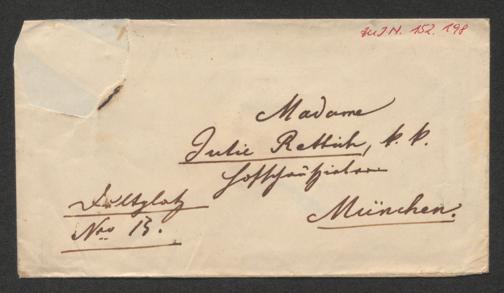 H.I.N. 152.198
Madame
Julie Rettich, k. k.
Hofschauspielerin
Dultplatz
Nro 13.
München.